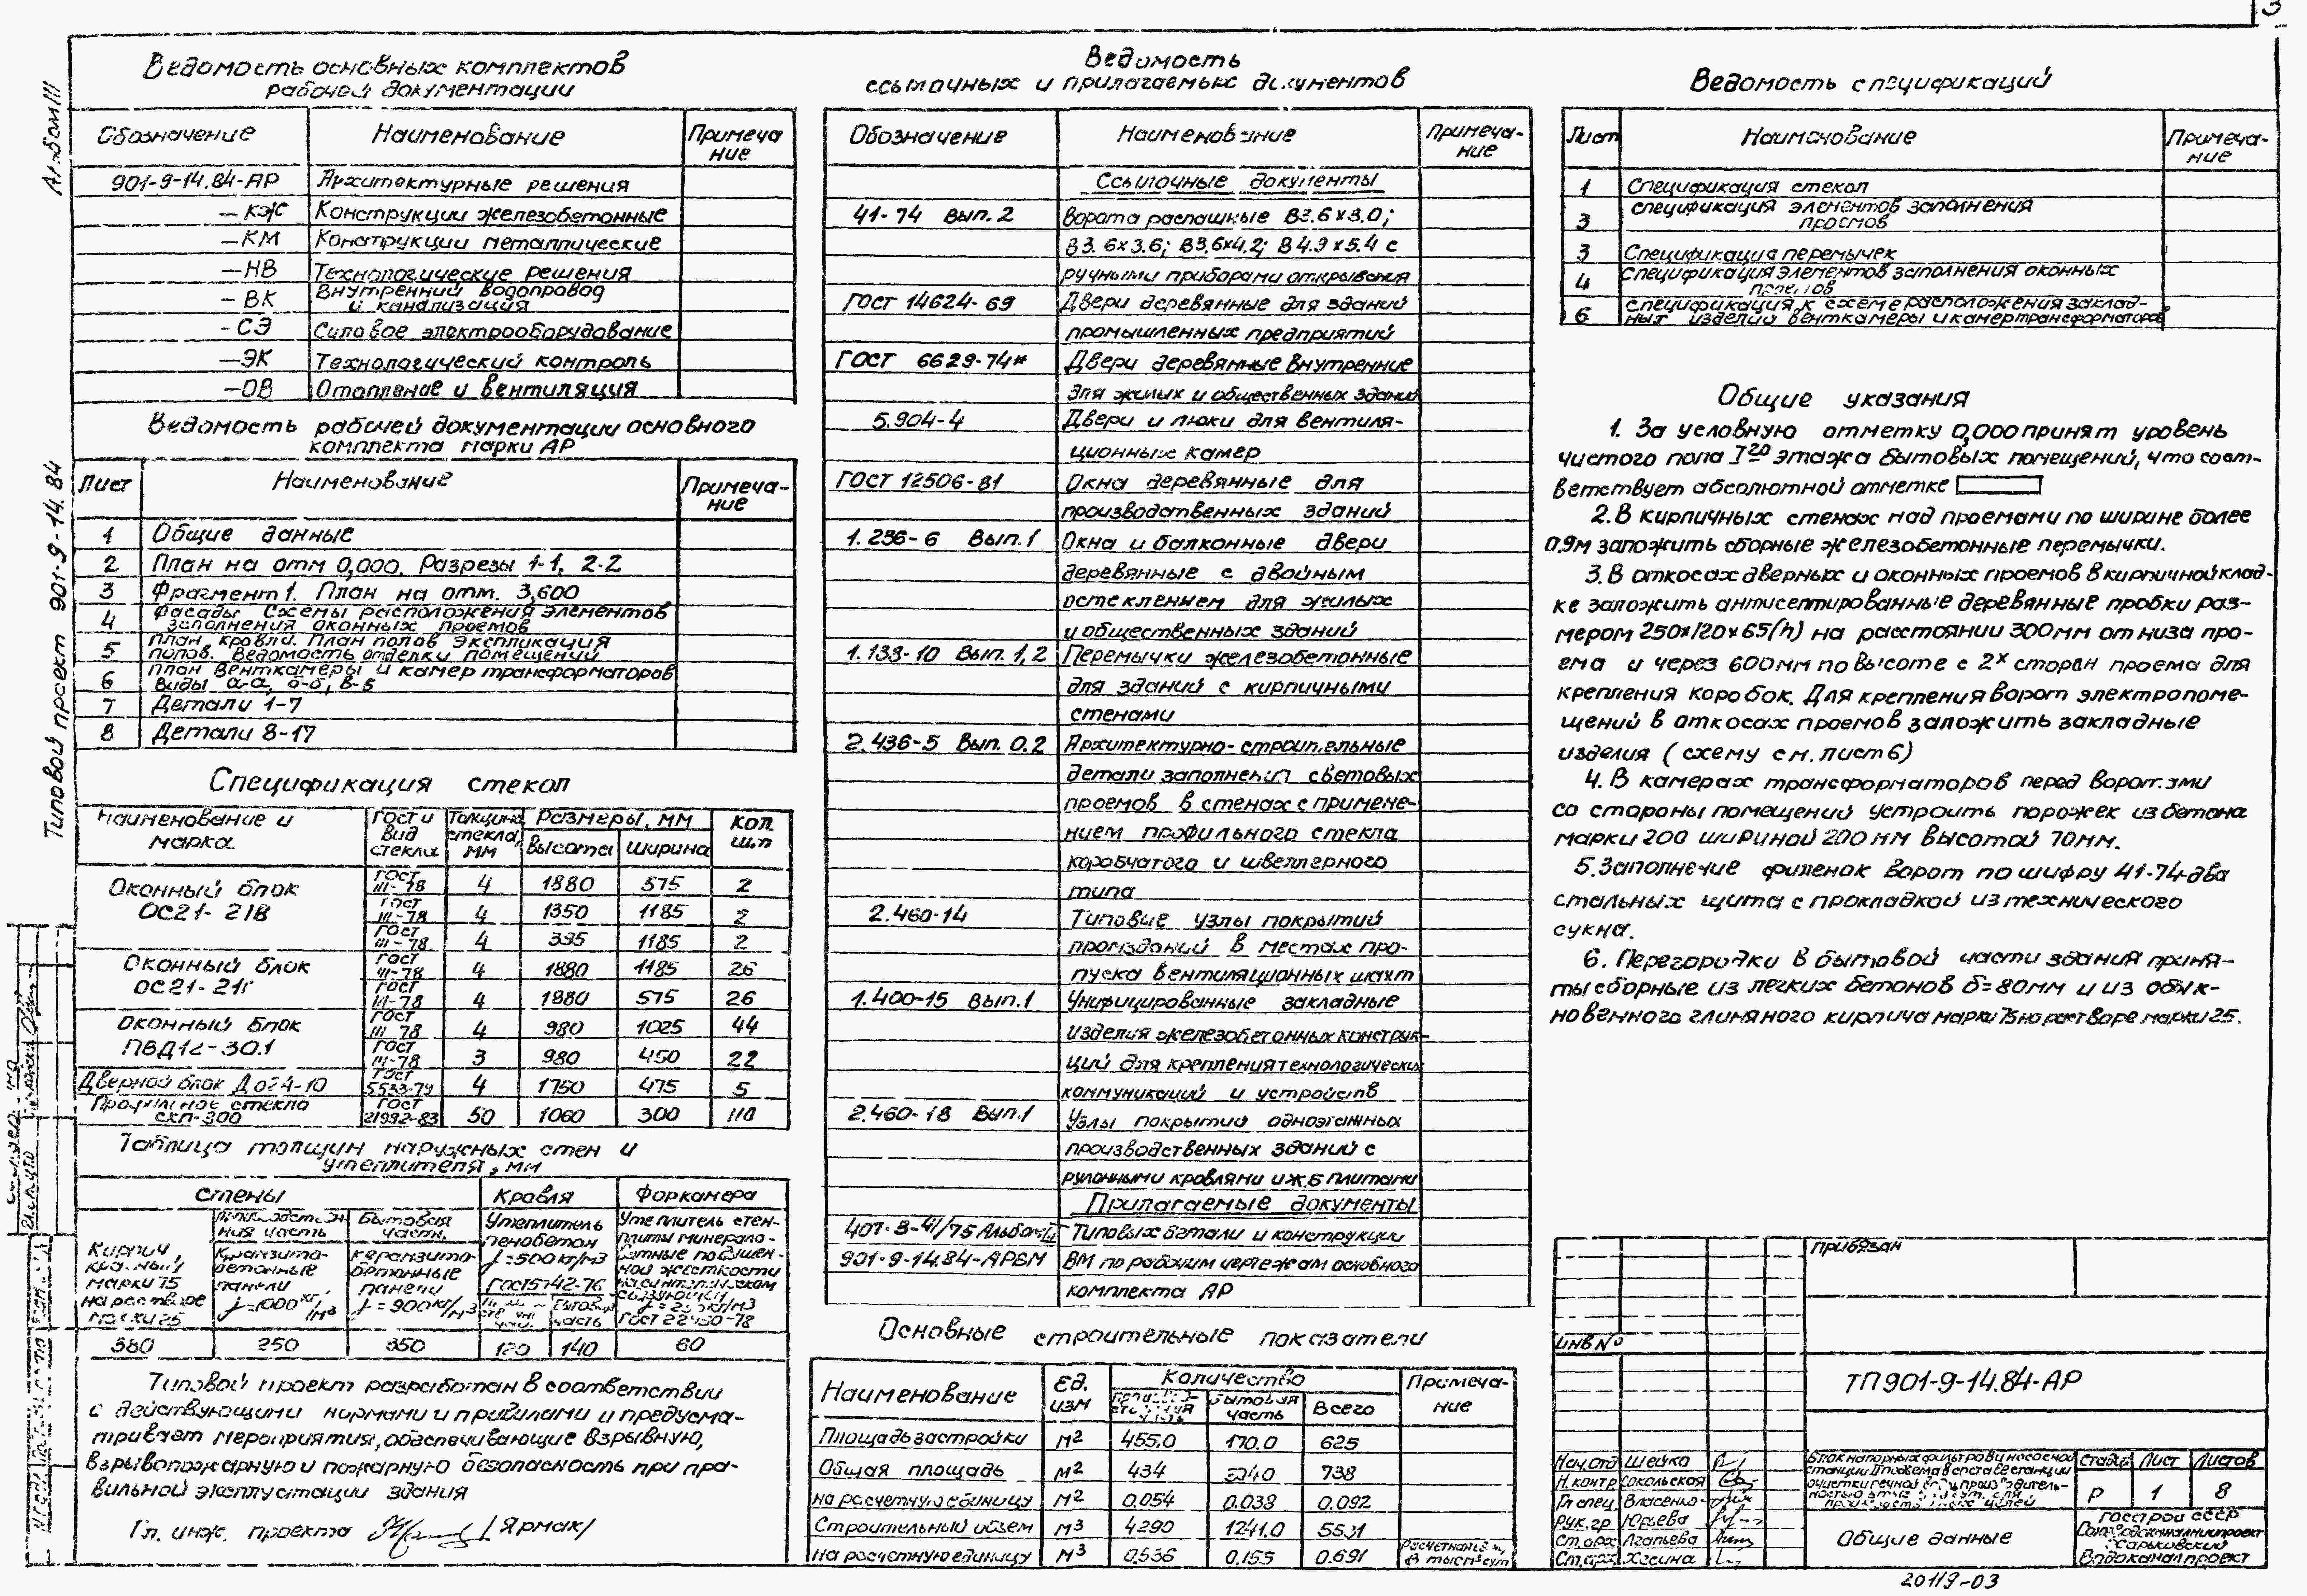 3
Альбом III
Типовой проект 901-9-14.84
Ведомость основных комплектов
рабочей документации
Обозначение Наименование Примеча
ние
901-9-14.84-АР Архитектурные решения
—КЖ Конструкции железобетонные
—КМ Конструкции металлические
—НВ Технологические решения
—ВК Внутренний водопровод
и канализация
—СЭ Силовое электрооборудование
—ЭК Технологический контроль
—ОВ Отопление и вентиляция
Ведомость рабочей документации основного
комплекта марки АР
Лист Наименование Примеча-
ние
1 Общие данные
2 План на отм 0,000. Разрезы 1-1, 2-2
3 Фрагмент 1. План на отм. 3,600
4 Фасады. Схемы расположения элементов
заполнения оконных проемов
5 План кровли. План полов Экспликация
полов. Ведомость отделки помещений
6 План венткамеры и камер трансформаторов
Виды а-а, б-б, в-в
7 Детали 1-7
8 Детали 8-17
Спецификация стекол
Наименование и
марка ГОСТ и
вид
стекла Толщина
стекла,
мм Размеры, мм Кол.
шт
Высота Ширина
Оконный блок
ОС21-21В ГОСТ
111-78 4 1880 575 2
ГОСТ
111-78 4 1350 1185 2
ГОСТ
111-78 4 395 1185 2
Оконный блок
ОС21-21г ГОСТ
111-78 4 1880 1185 26
ГОСТ
111-78 4 1880 575 26
Оконный блок
ПВД12-30.1 ГОСТ
111-78 4 980 1025 44
ГОСТ
111-78 3 980 450 22
Дверной блок До24-10 ГОСТ
5533-79 4 1750 475 5
Профильное стекло
СКП-300 ГОСТ
21992-83 50 1060 300 110
Таблица толщин наружных стен и
утеплителя, мм
Стены Кровля Форкамера
Кирпич
красный
марки 75
на растворе
марки 25
ная часть
Керамзито-
бетонные
панели
γ=1000 кг/м3
Бытовая
часть
Керамзито-
бетонные
панели
γ=900 кг/м3
Утеплитель
пенобетон
γ=500 кг/м3
ГОСТ 5742-76
Бытовая
часть
Утеплитель стен-
плиты минерало-
ватные повышен-
ной жесткости
на синтетическом
связующем
ГОСТ 22950-78
380 250 350 120 140 60
Типовой проект разработан в соответствии
с действующими нормами и правилами и предусма-
тривает мероприятия, обеспечивающие взрывную,
взрывопожарную и пожарную безопасность при пра-
вильной эксплуатации здания
Гл. инж. проекта /Ярмак/
Ведомость
ссылочных и прилагаемых документов
Обозначение Наименование Примеча-
ние
Ссылочные документы
41-74 Вып. 2 Ворота распашные В3.6х3.0;
В3.6х3.6; В3.6х4.2; В4.9х5.4 с
ручными приборами открывания
ГОСТ 14624-69 Двери деревянные для зданий
промышленных предприятий
ГОСТ 6629-74* Двери деревянные внутренние
для жилых и общественных зданий
5.904-4 Двери и люки для вентиля-
ционных камер
ГОСТ 12506-81 Окна деревянные для
производственных зданий
1.236-6 Вып.1 Окна и балконные двери
деревянные с двойным
остеклением для жилых
и общественных зданий
1.138-10 Вып. 1,2 Перемычки железобетонные
для зданий с кирпичными
стенами
2.436-5 Вып. 0.2 Архитектурно-строительные
детали заполнения световых
проемов в стенах с примене-
нием профильного стекла
коробчатого и швеллерного
типа
2.460-14 Типовые узлы покрытий
промзданий в местах про-
пуска вентиляционных шахт
1.400-15 Вып.1 Унифицированные закладные
изделия железобетонных конструк-
ций для крепления технологических
коммуникаций и устройств
2.460-18 Вып.1 Узлы покрытий одноэтажных
производственных зданий с
рулонными кровлями и ж.б плитами
Прилагаемые документы
407-3-41/75 Альбом Типовые детали и конструкции
901-9-14.84-АРВМ ВМ по рабочим чертежам основного
комплекта АР
Основные строительные показатели
Наименование Ед.
изм Количество Примеча-
ние
Бытовая
часть Всего
Площадь застройки м2 455.0 170.0 625
Общая площадь м2 434 738
на расчетную единицу м2 0.054 0.038 0.092
Строительный объем м3 4290 1241.0 5531
на расчетную единицу м3 0.536 0.155 0.691
Ведомость спецификаций
Лист Наименование Примеча-
ние
1 Спецификация стекол
3 Спецификация элементов заполнения
проемов
3 Спецификация перемычек
4 Спецификация элементов заполнения оконных
проемов
6 Спецификация к схеме расположения заклад-
ных изделий венткамеры и камер трансформаторов
Общие указания
1. За условную отметку 0,000 принят уровень
чистого пола Iго этажа бытовых помещений, что соот-
ветствует абсолютной отметке
2. В кирпичных стенах над проемами по ширине более
0.9м заложить сборные железобетонные перемычки.
3. В откосах дверных и оконных проемов в кирпичной клад-
ке заложить антисептированные деревянные пробки раз-
мером 250х120х65(h) на расстоянии 300мм от низа про-
ема и через 600мм по высоте с 2х сторон проема для
крепления коробок. Для крепления ворот электропоме-
щений в откосах проемов заложить закладные
изделия (схему см. лист 6)
4. В камерах трансформаторов перед воротами
со стороны помещений устроить порожек из бетона
марки 200 шириной 200 мм высотой 70мм.
5. Заполнение филенок ворот по шифру 41-74-два
стальных щита с прокладкой из технического
сукна.
6. Перегородки в бытовой части здания приня-
ты сборные из легких бетонов δ=80мм и из обык-
новенного глиняного кирпича марки 75 на растворе марки 25.
Привязан
Инв №
ТП 901-9-14.84-АР
Нач. отд Шейко
Н. контр Сокольская
Гл спец. Власенко
Рук. гр Юрьева
Ст. арх Агапьева
Ст. арх. Хасина
Блок напорных фильтров и насосной
станции II подъема в составе станции
Стадия Лист Листов
Р 1 8
Общие данные
Госстрой СССР
Союзводоканалниипроект
Харьковский
Водоканалпроект
20119-03